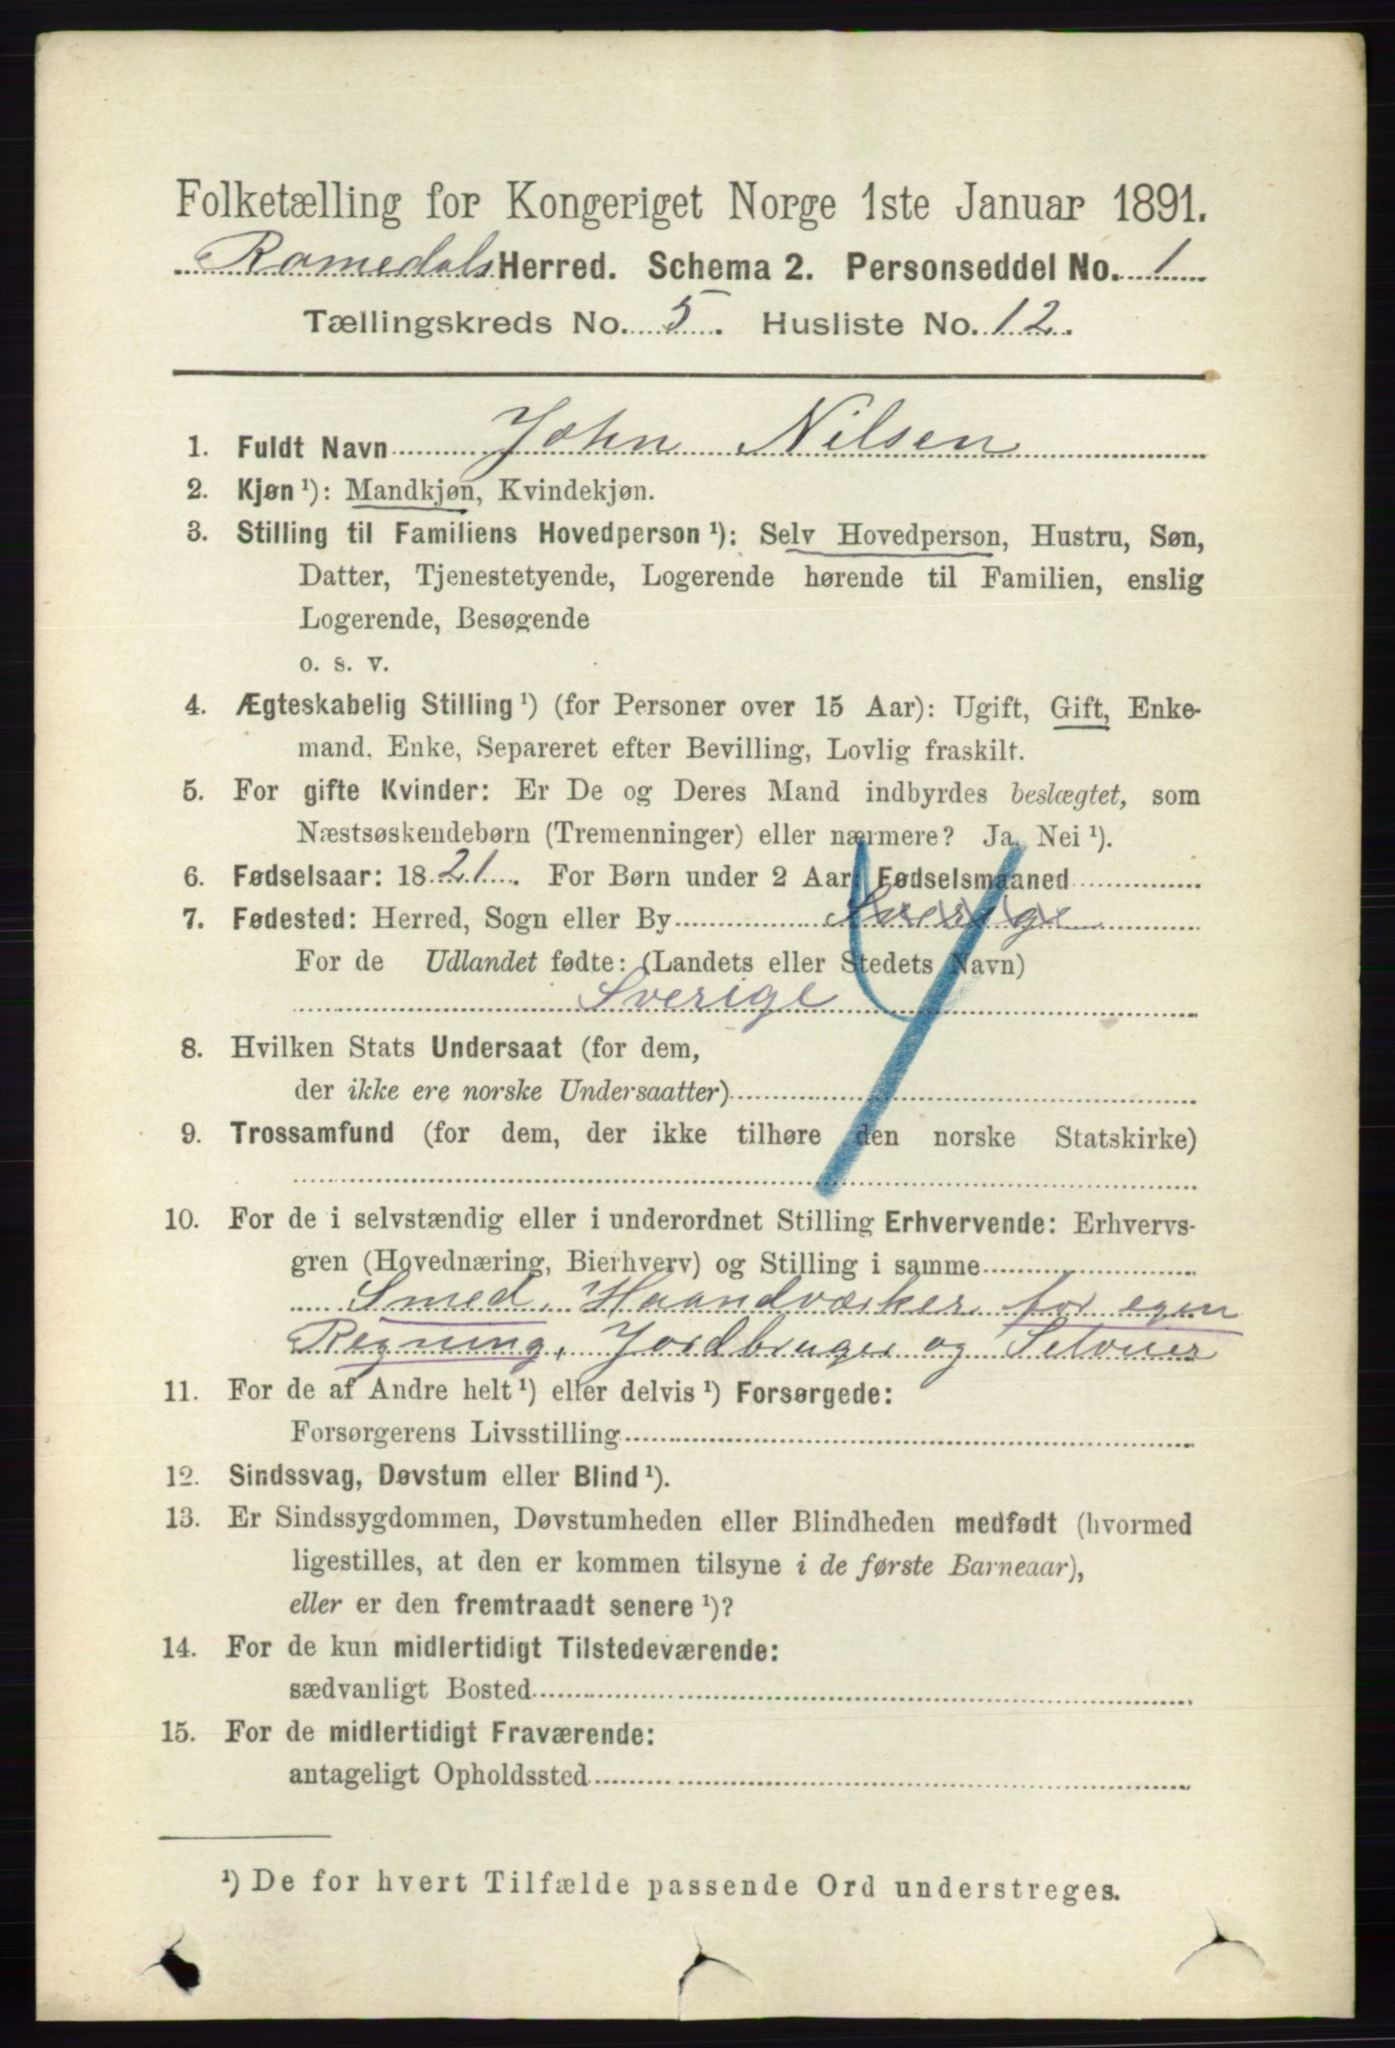 Folketælling for Kongeriget Norge 1ste Januar 1891.
Romedals Herred. Schema 2. Personseddel No. 1
Tællingskreds No. 5. Husliste No. 12.
1. Fuldt Navn John Nilsen
2. Kjøn ¹): Mandkjøn, Kvindekjøn.
3. Stilling til Familiens Hovedperson ¹): Selv Hovedperson, Hustru, Søn,
Datter, Tjenestetyende, Logerende hørende til Familien, enslig
Logerende, Besøgende
o. s. v.
4. Ægteskabelig Stilling ¹) (for Personer over 15 Aar): Ugift, Gift, Enke-
mand, Enke, Separeret efter Bevilling, Lovlig fraskilt.
5. For gifte Kvinder: Er De og Deres Mand indbyrdes beslægtet, som
Næstsøskendebørn (Tremenninger) eller nærmere? Ja, Nei ¹).
6. Fødselsaar: 1821. For Børn under 2 Aar: Fødselsmaaned
7. Fødested: Herred, Sogn eller By Sverige
For de Udlandet fødte: (Landets eller Stedets Navn)
Sverige
8. Hvilken Stats Undersaat (for dem,
der ikke ere norske Undersaatter)
9. Trossamfund (for dem, der ikke tilhøre den norske Statskirke)
10. For de i selvstændig eller i underordnet Stilling Erhvervende: Erhvervs-
gren (Hovednæring, Bierhverv) og Stilling i samme
Smed, Haandværker for egen
Regning, Jordbruger og Selveier
11. For de af Andre helt ¹) eller delvis ¹) Forsørgede:
Forsørgerens Livsstilling
12. Sindssvag, Døvstum eller Blind ¹).
13. Er Sindssygdommen, Døvstumheden eller Blindheden medfødt (hvormed
ligestilles, at den er kommen tilsyne i de første Barneaar),
eller er den fremtraadt senere ¹)?
14. For de kun midlertidigt Tilstedeværende:
sædvanligt Bosted
15. For de midlertidigt Fraværende:
antageligt Opholdssted
¹) De for hvert Tilfælde passende Ord understreges.